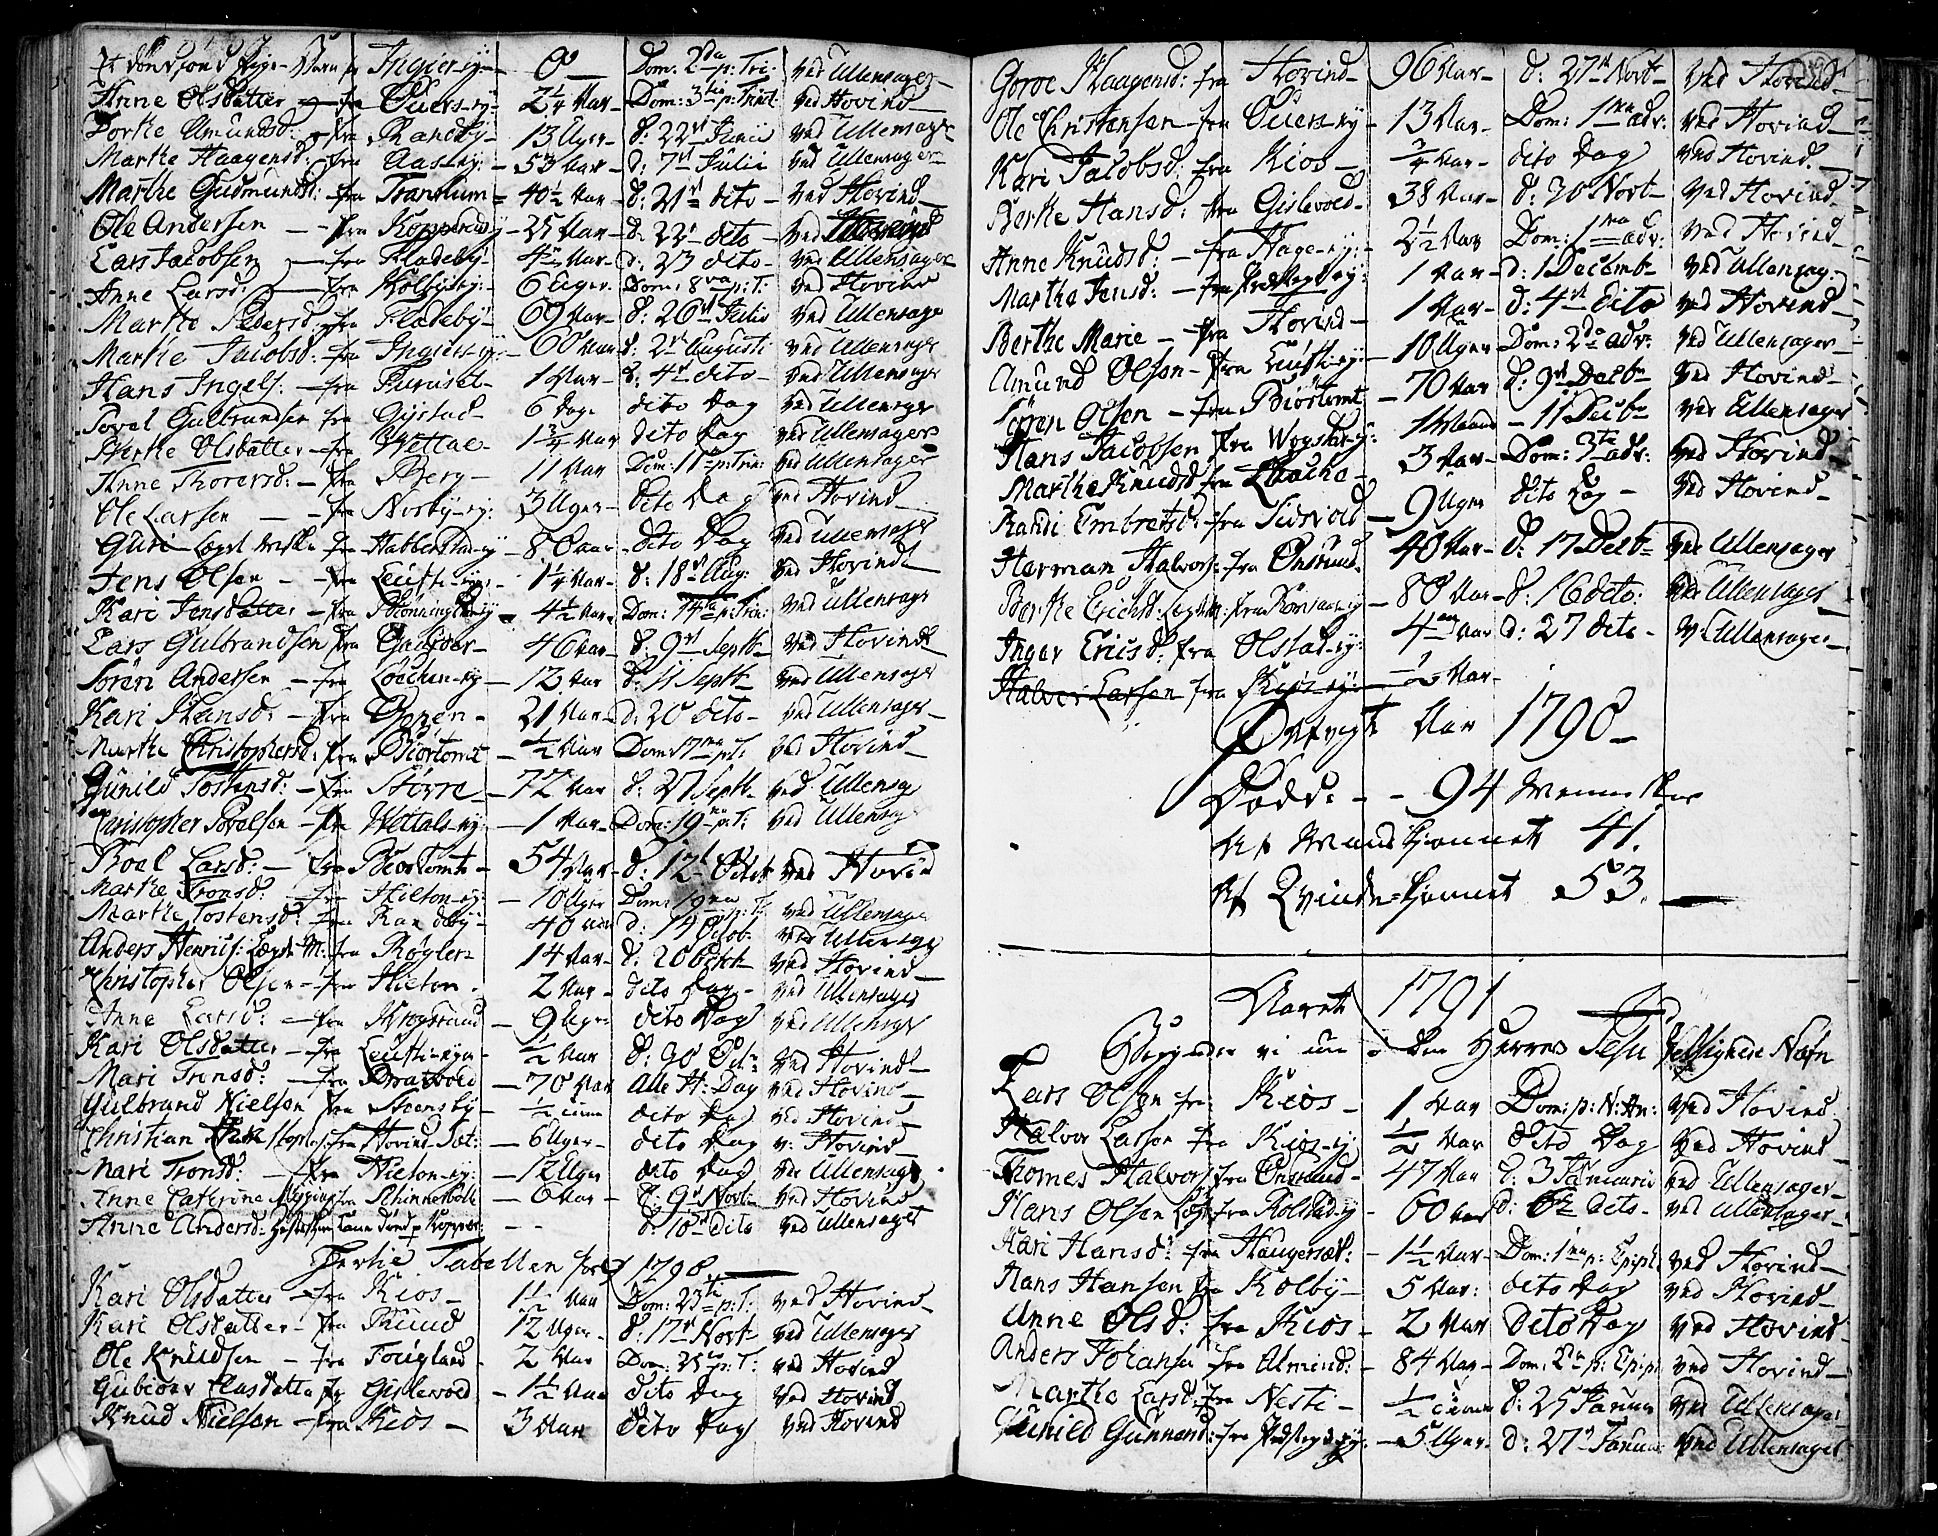 Et dødfød Pige-Barn fr Ingier-ey - 0 - Dom: 2da p: Tri: ved Ullensager
Anne Olsdatter - fra Ouers-ey: 2 1/4 Aar - Dom: 3tia p: Trinit ved Hovind
Torke Amunds: fra Randby - 13 Uger - d: 22 Junii ved Ullensager
Marthe Haagensd: fra Aas-ey: - 53 Aar - d: 7de Julii ved Ullensager
Marthe Gudmunds: fra Trandum - 40 1/2 Aar - d: 21 dito - ved Hovind
Ole Andersen - fra Kopperud - 25 Aar - d: 22 dito - ved
Lars Jacobsen - fra Fladeby - Aar - d: 23 dito - ved Ullensager
Anne Larsd: - fra Kolby-ey: - 6 Uger - Dom: 8va p: T: ved Hovind
Marthe Pedersd: fra Fladeby - 69 Aar - d: 26 Julii ved Ullensager
Marthe Jacobsd: fra Ingiers-ey: - 60 Aar d: 2 Augusti ved Ullensager
Hans Ingels: - fra Furuset - 1 Aar - d: 4 dito - ved Ullensager
Povel Gulbrandsen fra Gystad - 6 Dage dito Dag ved Ullensager
Berthe Olsdatter - fra Wettal - 1 3/4 Aar dito Dag ved Ullensager
Anne Thorersd: - fra Berg - 11 Aar Dom: 11 p: Trin: ved Ullensager
Ole Larsen - fra Norby-ey: 3 Uger - dito Dag ved Hovind
Guri Lægd - fra Habberstad-ey - 80 Aar - dito Dag ved Ullensager
Jens Olsen - fra Leufti-ey: - 1 1/4 Aar - d: 18 Aug: ved Hovind
Kari Jensdatter - fra - 4 1/2 Aar - Dom: 14ta p: Trin: ved Ullensager
Lars Gulbrandsen fra - 46 Aar - d: 9 Septb ved Hovind
Sören Andersen - fra Loachen-ey - 12 Aar d: 11 Septb ved Ullensager
Kari Hansd: - fra Opnen - 21 Aar - d: 20 dito - ved Ullensager
Marthe Christophersd: fra Biørtomt - 1/2 Aar Dom 17ma p: T: ved Hovind
Gunild Tostensd: - fra Större - 72 Aar d: 27 Septb - ved Ullensag
Christopher Povelsen - fra Wettals-ey: - 1 Aar - Dom: 19 p: T: ved Ullensag
Roal Larsd: - fra Biørtomt - 54 Aar - d: 12 Octob ved Hovind
Marthe Tronsd: fra Hilton-ey: - 10 Uger Dom: 19na p: T: ved Ullensager
Marthe Tostensd: fra Randeby - 40 Aar d: 19 Octob: ved Ullensager
Anders Henrics: Lægds M: fra Røgler - 14 Aar - d: 20 Octob ved Hovind
Christopher Olsen - fra Hilton - 2 Aar - dito Dag - ved Ullensager
Anne Larsd: - fra Krogsrud - 9 Uger dito Dag ved Ullensager
Kari Olsdatter - fra Leufti-eyer - 1/2 Aar d: 30 Oct: ved Hovind
Mari Tronsd: - fra Bratvold - 70 Aar Alle H: Dag ved Hovind
Gulbrand Nielsen fra Steensby - 1/2 dito Dag ved Hovind
Christian fra Hovind-Sæt: - 6 Uger - dito Dag v: Hovind
Mari Tronsd: - fra Hilton-ey: - 12 Uger dito Dag ved Ullensager
Anne Catrine fra Skinnerboll - 6 Aar - d: 9 Novb: ved Hovind
Anne Andersd: - - d: 10 dito ved Ullensager
Tabellen for 1790
Kari Olsdatter - fra Kios - 1 1/2 Aar Dom: 23tia p: T: ved Hovind
Kari Olsdatter - fra Ruud 12 Uger - d: 17 Novb ved Ullensager
Ole Knudsen - fra Fougland 2 Aar Dom: 25 p: T: ved Hovind
Gubiør Clasdatter fr Gislevold - 1 1/2 Aar dito Dag ved Hovind
Knud Nielsen - fra Kios - 3 Aar dito Dag ved Hovind
Goroe Haagensd: fra Hovind - 96 Aar - d: 27 Novb - ved Hovind
Ole Christensen - fra Ouers-ey - 13 Aar - Dom: 1ma adv: ved Hovind
Kari Jacobsd: fra Kios - 3/4 Aar - dito Dag ved Hovind
Berthe Hansd: fra Gislevold - 38 Aar - d: 30 Novb - ved Hovind
Anne Knudsd: - fra Hage-ey: 2 1/2 Aar Dom: 1ma adv: ved Hovind
Marthe Jensd: - fra 1 Aar - d: 1 Decemb - ved Ullensag:
Berthe Marie - fra Hovind - 1 Aar - d: 4 dito ved Hovind
Amund Olsen - fra Leufti-ey: - 10 Uger Dom: 2da adv: ved Ullensager
Sören Olsen - fra Biörtomt - 70 Aar d: 9 Decbr ved Hovind
Hans Jacobsen fra Wogstad-ey: 1 Maaned - 11 Decbr ved Ullensager
Marthe Knudsd fra Loache - 3 Aar - Dom: 3tia adv: ved Hovind
Randi Embretsd: fra Tidsvold - 9 Uger dito Dag - ved Hovind
Herman Halvors: fra Onsrud - 40 Aar - d: 17 Decbr ved Ullensager
Berthe Erichsd: Lægdsl: fra - 80 Aar - d: 16 dito: ved Ullensager
Inger Ericsd: fra Olstad-ey: 4 Aar d: 27 dito - v: Ullensager
Halvor Larsen fra Kios-ey: 1/2 Aar -
Aar 1790
Døde - - 94 Mennisker
Af Mandkionnet 41.
Af Qvinde-kionnet 53.
Aaret 1791
Begynder vi nu i den Herres Jesu Velsignede Nafn
Lars Olsen fra Kios - 1 Aar Dom: p: N: An: ved Hovind
Halvor Larsen fra Kios-ey 1/2 Aar dito Dag ved Hovind
Thomes Halvors: fra Onsrud - 47 Aar d: 3 Januarii ved Ullensager
Hans Olsen Lægd: fra Rolstad-ey - 60 Aar d: 6 dito - ved Ullensager
Kari Hansd: fra Haugersæt: - 1 1/2 Aar - Dom: 1ma p: Epiph: ved Hovind
Hans Hansen fra Kolby - 5 Aar: dito Dag ved Hovind
Anne Olsd: fra Kios - 2 Aar dito Dag ved Hovind
Anders Johansen fra Almind: - 84 Aar - Dom: 2da p: Epip: ved Hovind
Marthe Larsd: fra Nesti - 1/2 d: 25 Januar ved Ullensager
Gunild Gunnersd: fra - 5 Uger - d: 27 Januar ved Ullensager